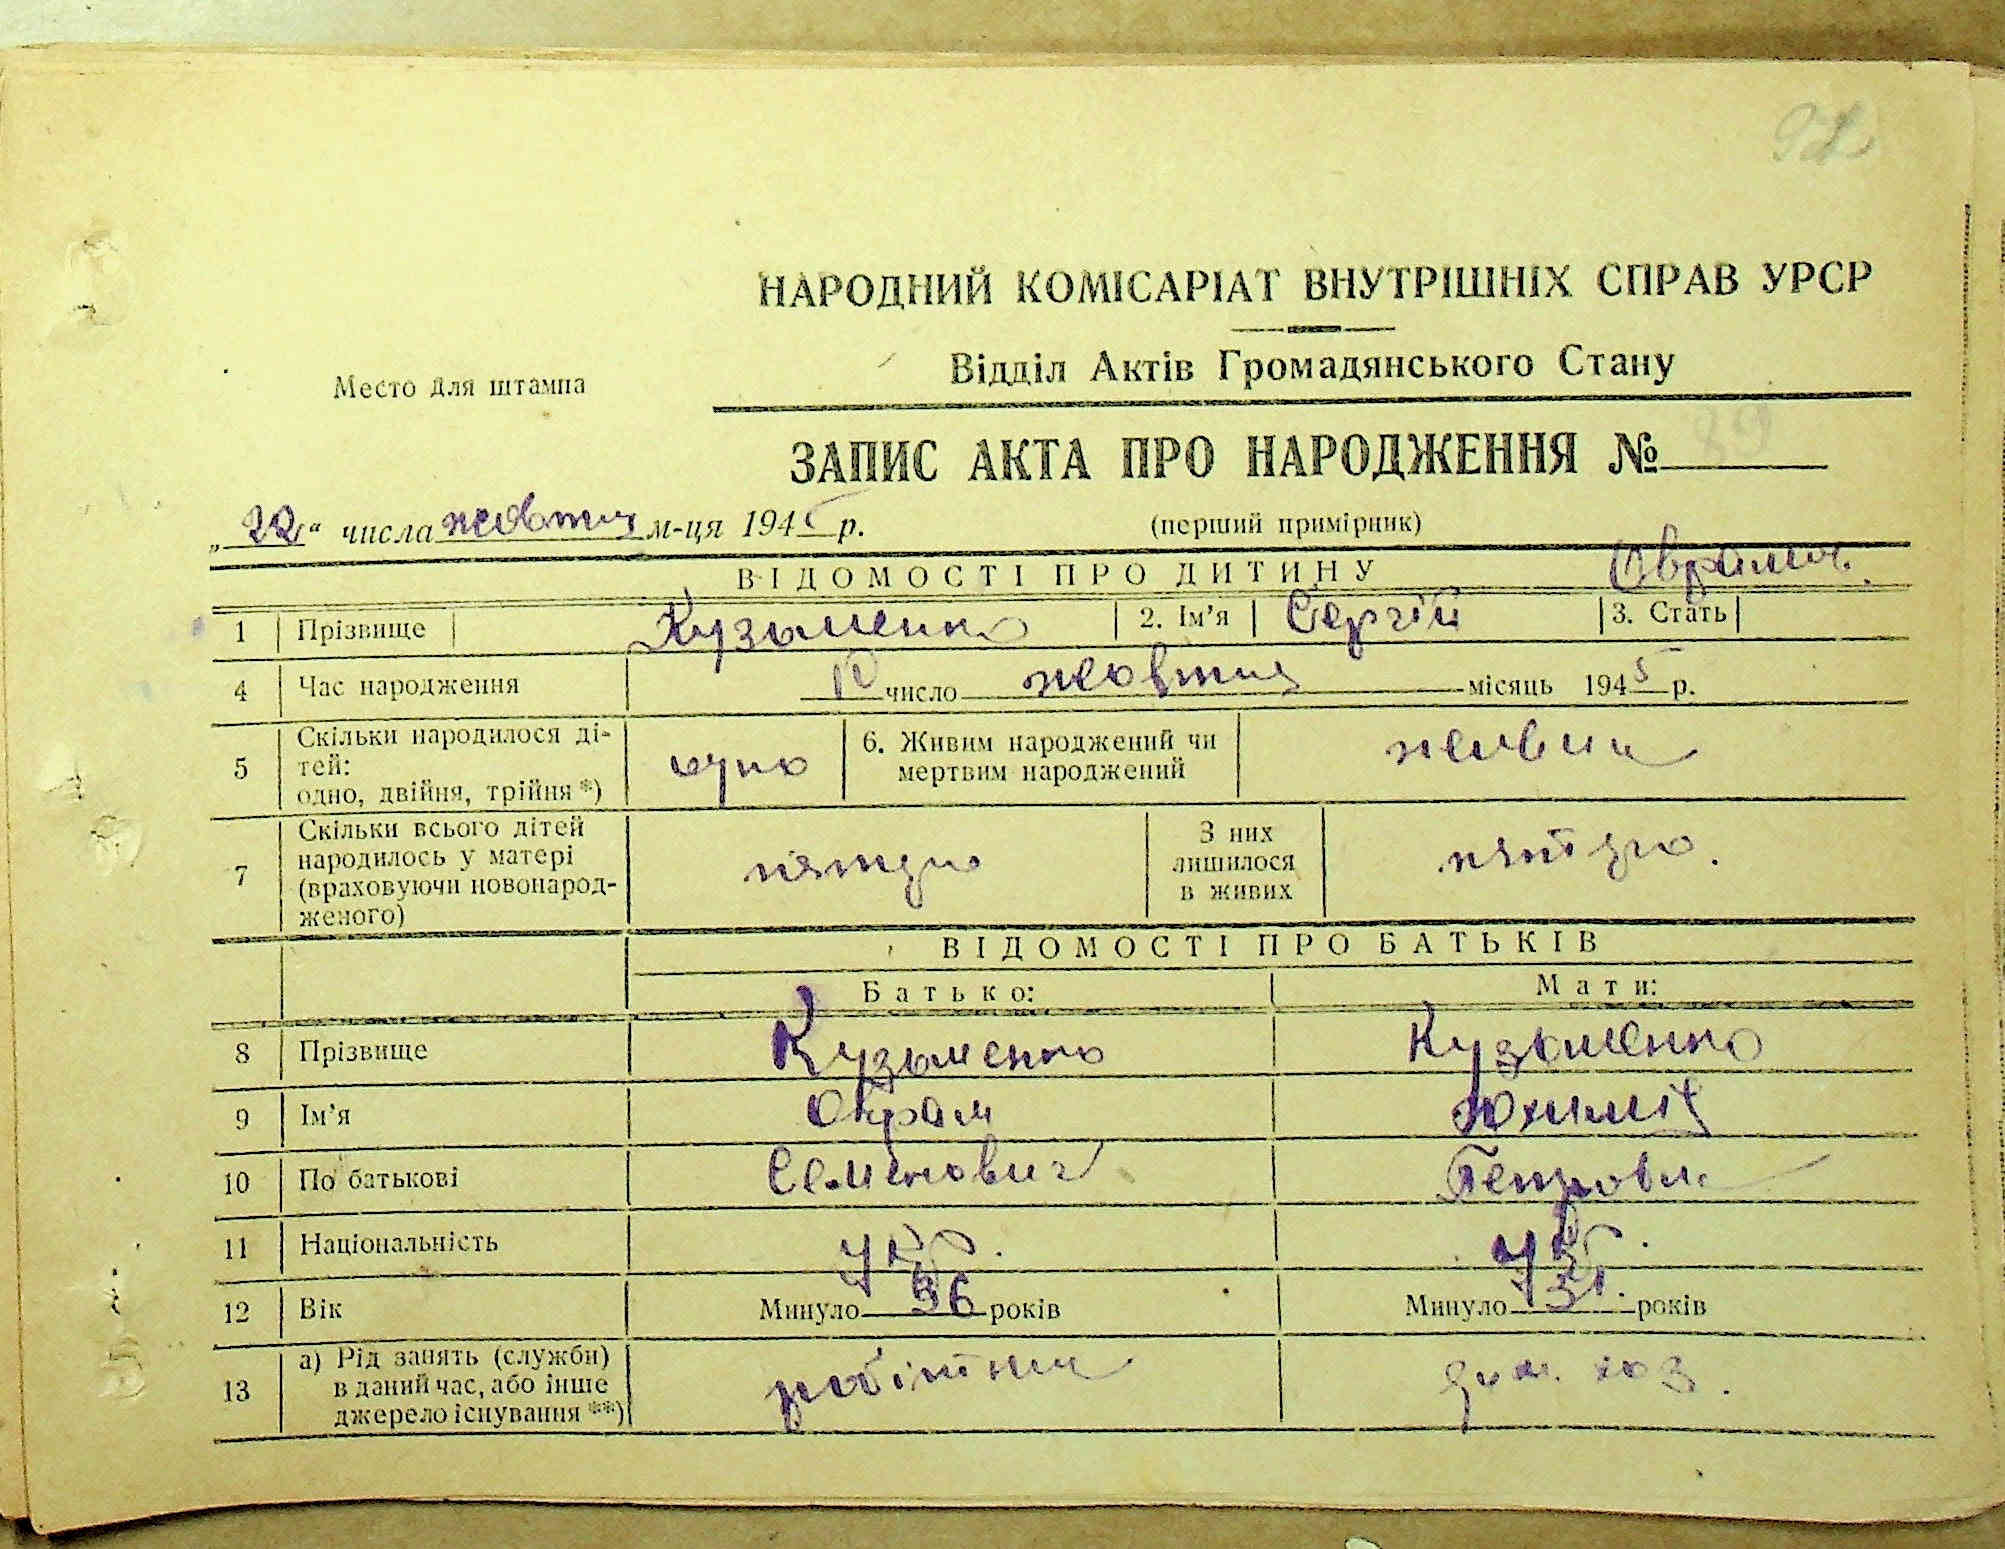 92
НАРОДНИЙ КОМІСАРІАТ ВНУТРІШНІХ СПРАВ УРСР
Відділ Актів Громадянського Стану
Место для штампа
ЗАПИС АКТА ПРО НАРОДЖЕННЯ № 89
„22“ числа жовтня м-ця 1945 р.
(перший примірник)
ВІДОМОСТІ ПРО ДИТИНУ
1 Прізвище Кузьменко 2. Ім'я Сергій 3. Стать
4 Час народження 10 число жовтня місяць 1945 р.
5 Скільки народилося ді-
тей:
одно, двійня, трійня *) одно
6. Живим народжений чи
мертвим народжений живим
7 Скільки всього дітей
народилось у матері
(враховуючи новонарод-
женого) пятеро
З них
лишилося
в живих пятеро.
ВІДОМОСТІ ПРО БАТЬКІВ
Батько: Мати:
8 Прізвище Кузьменко Кузьменко
9 Ім'я Юхимія
10 По батькові Семенович Петровна
11 Національність укр. укр.
12 Вік Минуло 36 років Минуло 31. років
13 а) Рід занять (служби)
в даний час, або інше
джерело існування **) робітник дом. хоз.